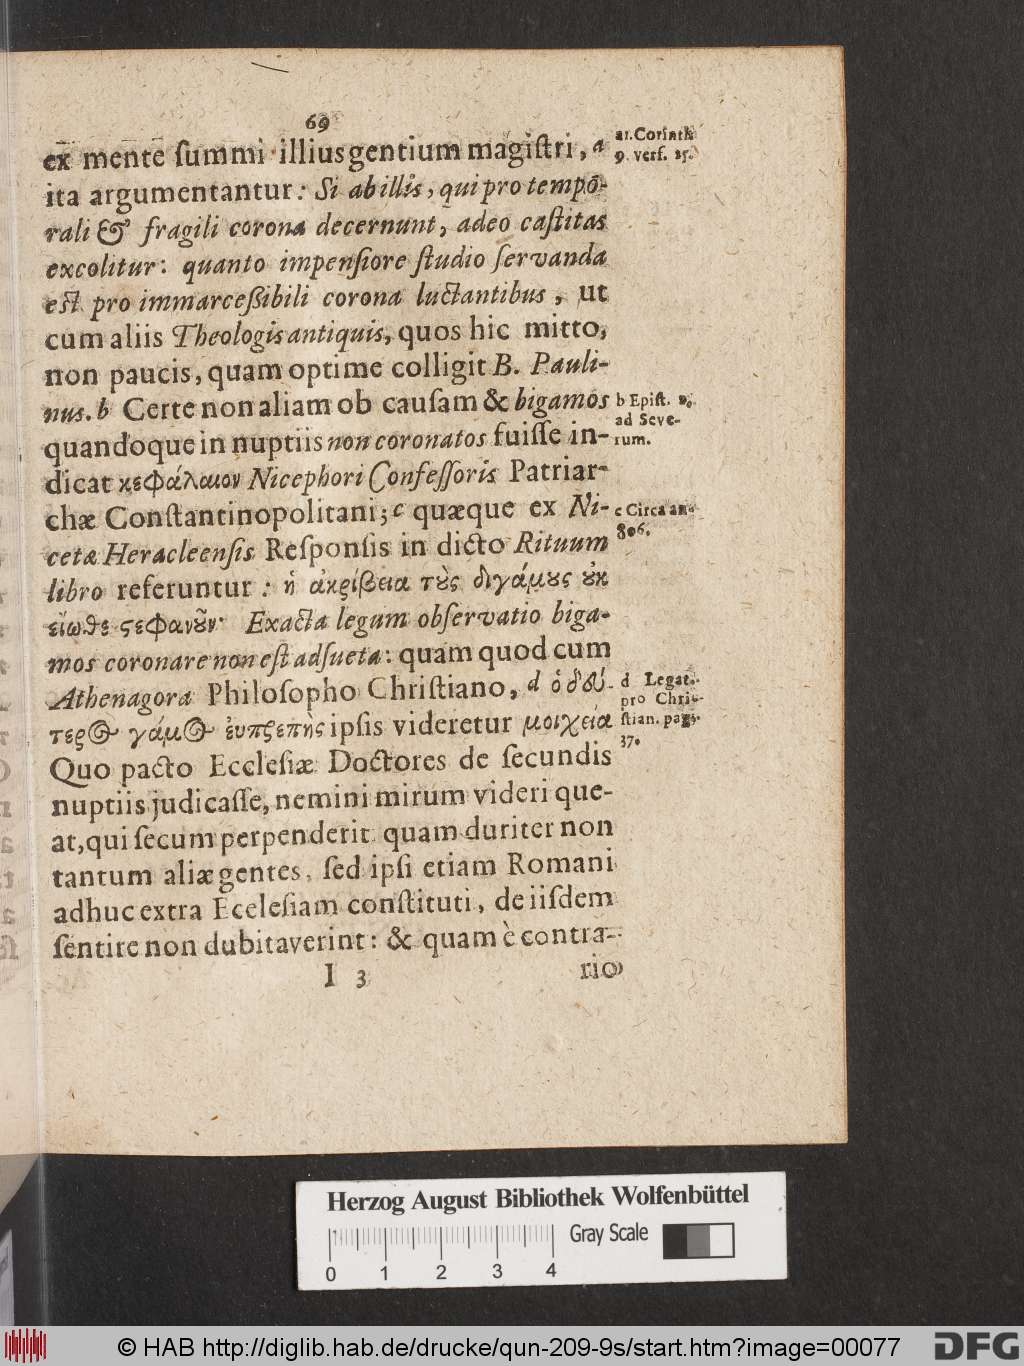 69
ex mente ſummi illius gentium magiſtri, a
ita argumentantur: Si ab illis, qui pro tempo-
rali & fragili corona decernunt, adeo caſtitas
excolitur: quanto impenſiore ſtudio ſervanda
eſt pro immarceßibili corona luctantibus, ut
cum aliis Theologis antiquis, quos hic mitto,
non paucis, quam optime colligit B. Pauli-
nus. b Certe non aliam ob cauſam & bigamos
quandoque in nuptiis non coronatos fuiſſe in-
dicat κεφάλαιον Nicephori Confeſſoris Patriar-
chæ Conſtantinopolitani; c quæque ex Ni-
cetæ Heracleenſis Reſponſis in dicto Rituum
libro referuntur: ἡ ἀκρίβεια τȣ̀ς διγάμȣς ȣ̓κ
εἴωθε ϛεφανοῦν· Exacta legum obſervatio biga-
mos coronare non eſt adſueta: quam quod cum
Athenagora Philoſopho Chriſtiano, d ὁ δεύ-
τερος γάμος ἐυπρεπὴς ipſis videretur μοιχεία
Quo pacto Eccleſiæ Doctores de ſecundis
nuptiis judicaſſe, nemini mirum videri que-
at, qui ſecum perpenderit quam duriter non
tantum aliæ gentes, ſed ipſi etiam Romani
adhuc extra Eccleſiam conſtituti, de iiſdem
ſentire non dubitaverint: & quam è contra-
I 3 rio
a 1. Corinth.
9. verſ. 25.
b Epiſt.
ad Seve-
rum.
c Circa an.
806.
d Legat.
pro Chri-
ſtian. pag.
37.
Herzog August Bibliothek Wolfenbüttel
Gray Scale
0 1 2 3 4
© HAB http://diglib.hab.de/drucke/qun-209-9s/start.htm?image=00077
DFG